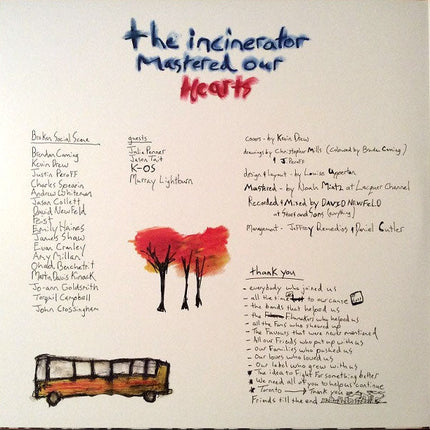 the incinerator
mastered our
Hearts
Broken Social Scene
Brendan Canning
Kevin Drew
Justin Peroff
Charles Spearin
Andrew Whiteman
Jason Collett
David Newfeld
Feist
Emily Haines
James Shaw
Evan Cranley
Amy Millan
Ohad Benchetrit
Martin Davis Kinack
Jo-ann Goldsmith
Torquil Campbell
John Crossingham
guests
Julie Penner
Jason Tait
K-OS
Murray Lightburn
covers - by Kevin Drew
drawings by Christopher Mills (Coloured by Brendan Canning)
+ J. Peroff
design + layout - by Louise Upperton
Mastered - by Noah Mintz at Lacquer Channel
Recorded + Mixed by DAVID NEWFELD
at Stars and Sons
Management - Jeffrey Remedios + Daniel Cutler
thank you
- everybody who joined us
- all the time to our cause
- the bands that helped us
- the Filmakers who helped us
- all the Fans who showed up
- The Favours that were never mentioned
- All our Friends who put up with us
- our Families who pushed us
- Our loves who loved us
- Our label who grew with us
The idea to Fight For something better
We need all of you to help us continue
Toronto → Thank you
Friends till the end